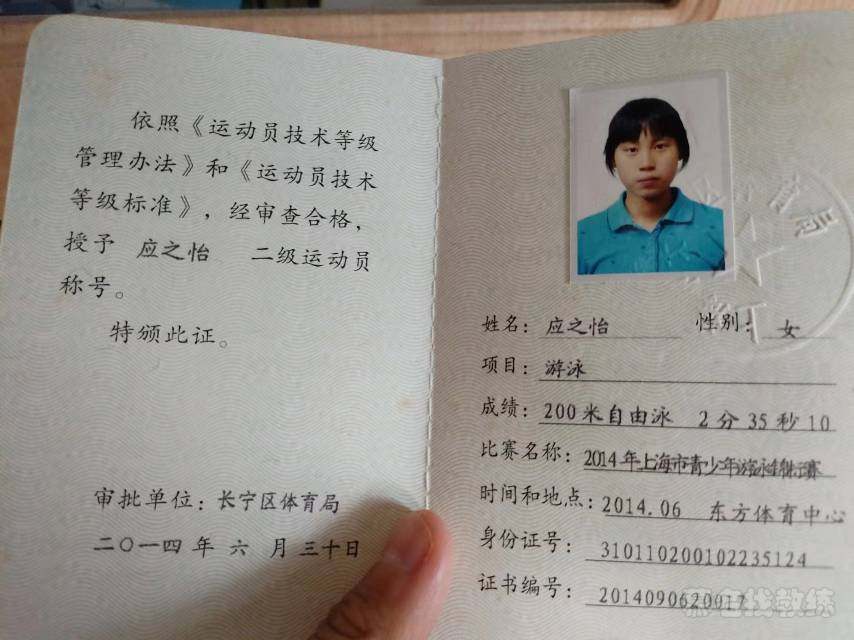 依照《运动员技术等级
管理办法》和《运动员技术
等级标准》，经审查合格，
授予 应之怡 二级运动员
称号。
特颁此证。
审批单位：长宁区体育局
二〇一四年 六 月 三十日
姓名：应之怡 性别：女
项目：游泳
成绩：200米自由泳 2分35秒10
比赛名称：2014年上海市青少年游泳锦标赛
时间和地点：2014.06 东方体育中心
身份证号：310110200102235124
证书编号：2014090620017
找教练